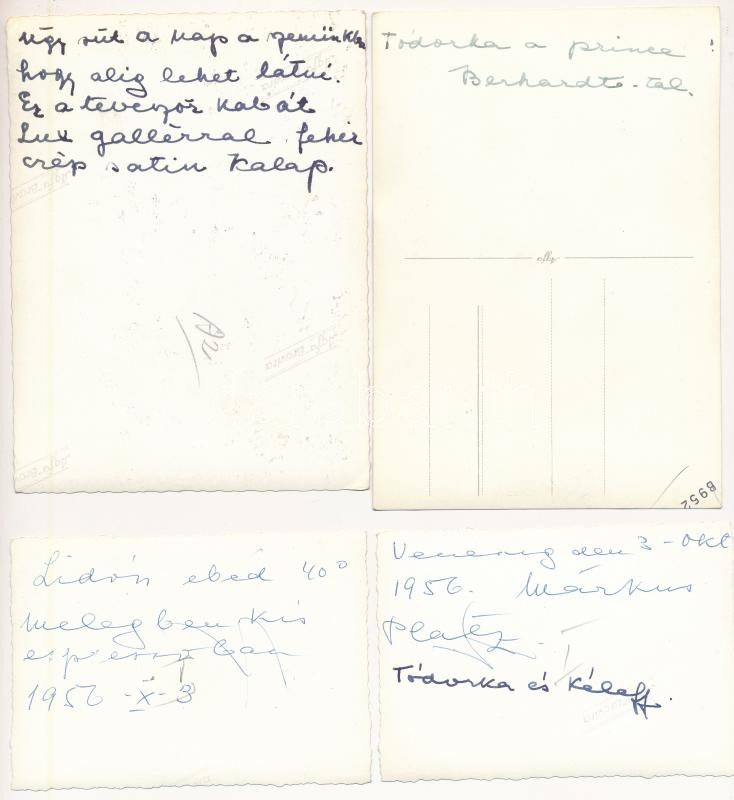 úgy süt a nap a szemünkbe
hogy alig lehet látni.
Ez a teveszőr kabát
Lux gallérral fehér
crèp satin kalap.
A2
Tódorka a prince !
Berhardt-tal.
Agfa
B952
Lidón ebéd 40°
melegben kis
espresszoban
1956 -X- 3
den 3 - okt
1956. Márkus
Platz.
Tódorka és Kéleff.